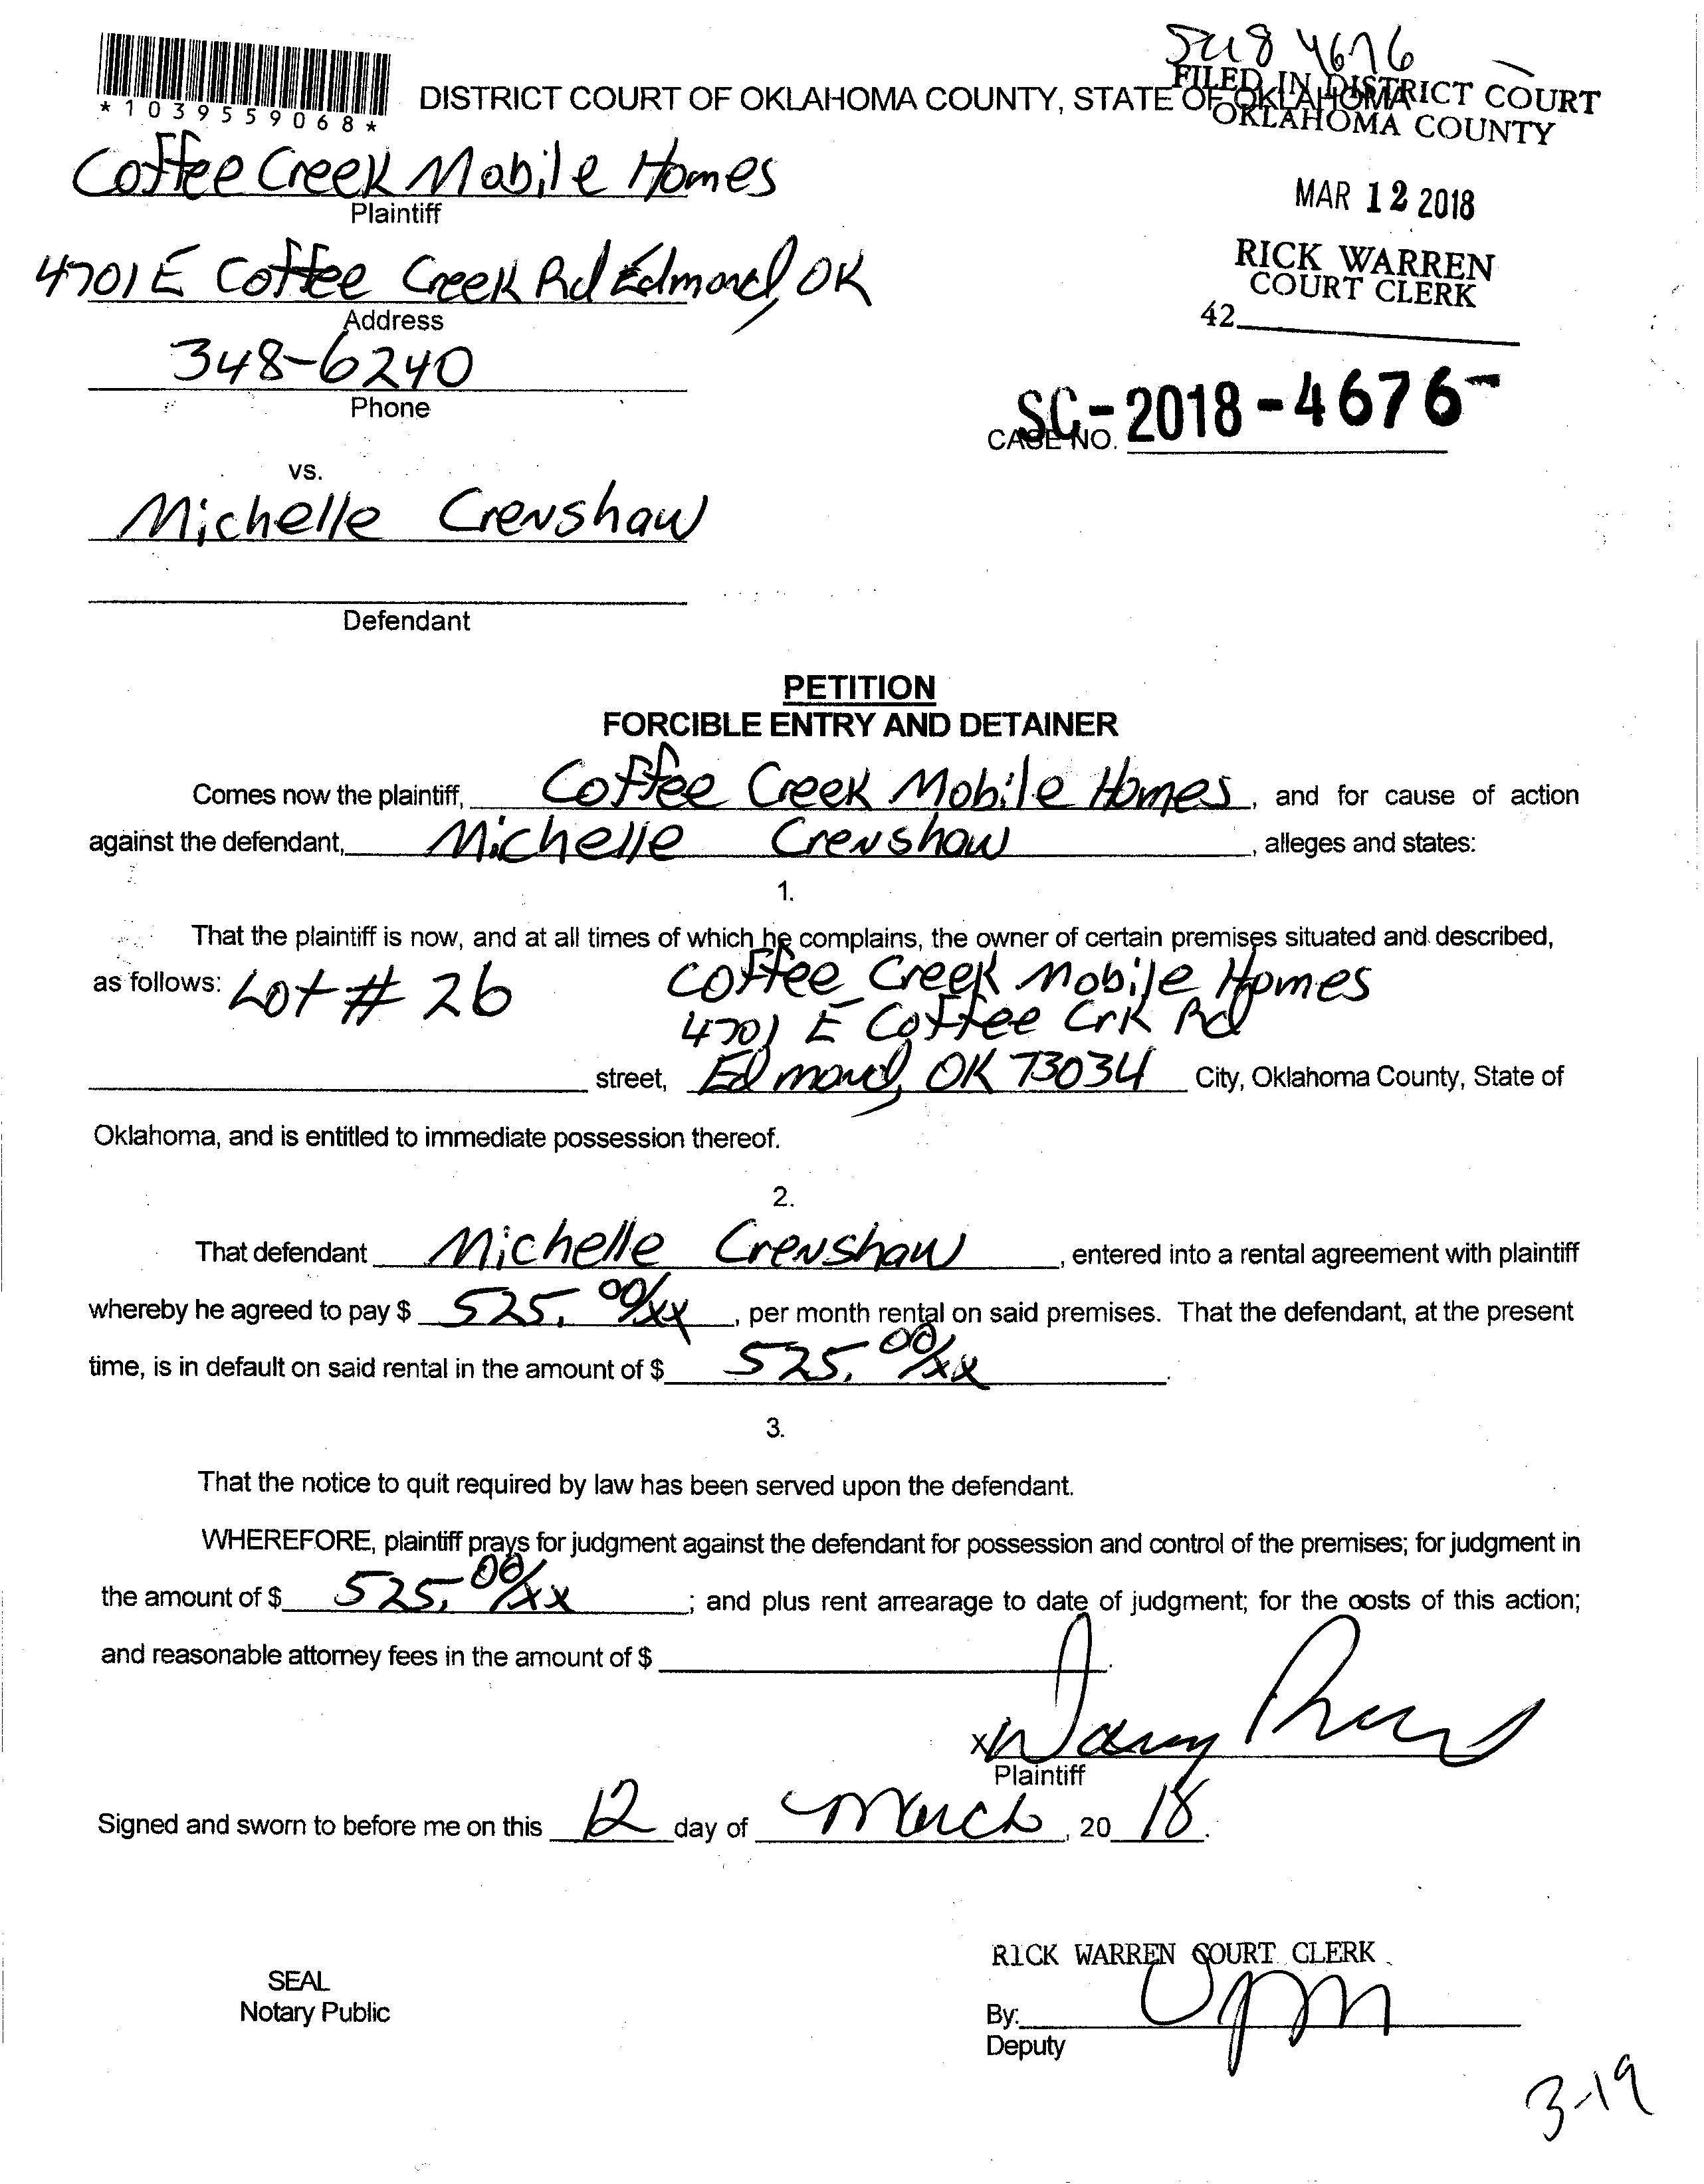 *1039559068*
DISTRICT COURT OF OKLAHOMA COUNTY, STATE OF OKLAHOMA
4676
FILED IN DISTRICT COURT
OKLAHOMA COUNTY
MAR 12 2018
RICK WARREN
COURT CLERK
42
Coffee Creek Mobile Homes
Plaintiff
4701 E Coffee Creek Rd Edmond, OK
Address
348-6240
Phone
SC-2018-4676-
CASE NO.
vs.
Michelle Crenshaw
Defendant
PETITION
FORCIBLE ENTRY AND DETAINER
Comes now the plaintiff, Coffee Creek Mobile Homes, and for cause of action
against the defendant, Michelle Crenshaw, alleges and states:
1.
That the plaintiff is now, and at all times of which he complains, the owner of certain premises situated and described,
as follows: Lot # 26 Coffee Creek Mobile Homes
4701 E Coffee Crk Rd
street, Edmond, OK 73034 City, Oklahoma County, State of
Oklahoma, and is entitled to immediate possession thereof.
2.
That defendant Michelle Crenshaw, entered into a rental agreement with plaintiff
whereby he agreed to pay $ 525. 00/xx, per month rental on said premises. That the defendant, at the present
time, is in default on said rental in the amount of $ 525. 00/xx.
3.
That the notice to quit required by law has been served upon the defendant.
WHEREFORE, plaintiff prays for judgment against the defendant for possession and control of the premises; for judgment in
the amount of $ 525. 00/xx; and plus rent arrearage to date of judgment; for the costs of this action;
and reasonable attorney fees in the amount of $.
x
Plaintiff
Signed and sworn to before me on this 12 day of March, 20 18.
RICK WARREN COURT CLERK
SEAL
Notary Public
By:
Deputy
3-19